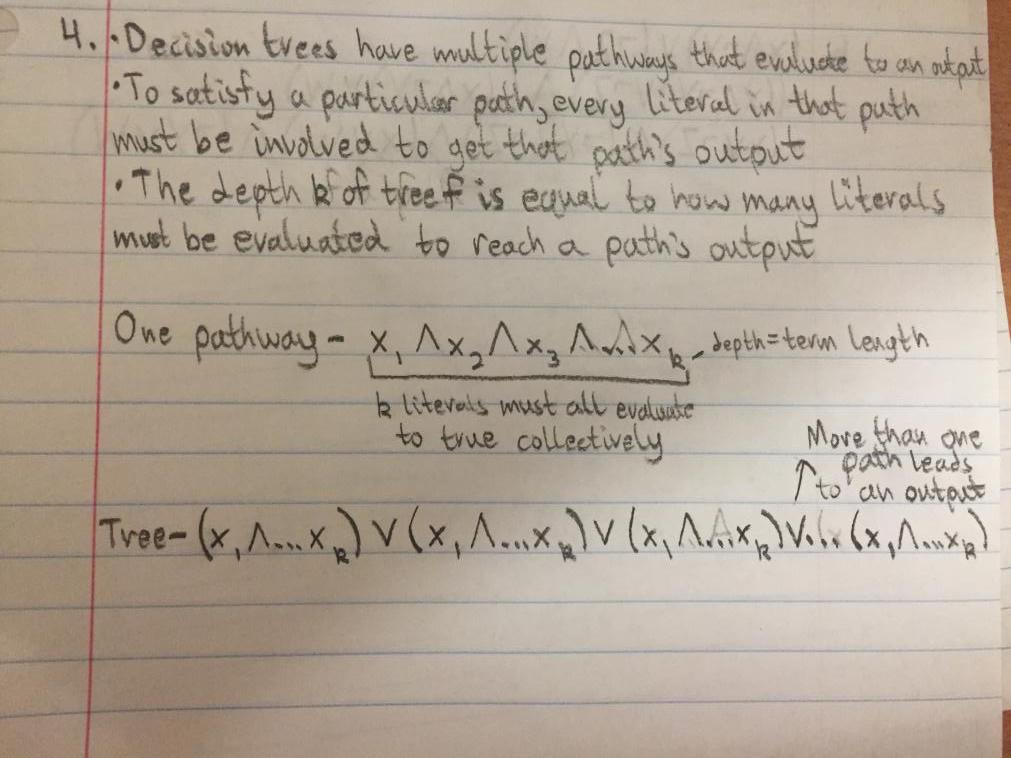 4. • Decision trees have multiple pathways that evaluate to an output
• To satisfy a particular path, every literal in that path
must be involved to get that path's output
• The depth k of tree f is equal to how many literals
must be evaluated to reach a path's output
One pathway - x₁ ∧ x₂ ∧ x₃ ∧ ... ∧ xₖ - depth = term length
k literals must all evaluate
to true collectively
More than one
path leads
↑ to an output
Tree - (x₁ ∧ ... xₖ) ∨ (x₁ ∧ ... xₖ) ∨ (x₁ ∧ ... xₖ) ∨ ... (x₁ ∧ ... xₖ)